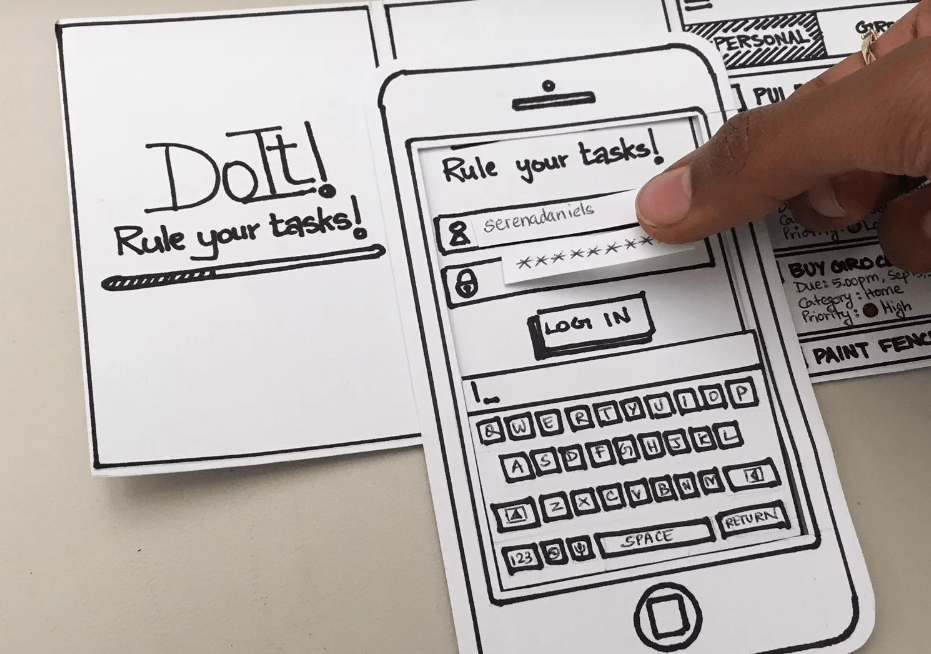 DoIt!
Rule your tasks!
Rule your tasks!
serenadaniels
********
LOG IN
Q W E R T Y U I O P
A S D F G H J K L
Z X C V B N M
123
SPACE
RETURN
PERSONAL
BUY
Due: 5.00pm, Sep
Category: Home
Priority: High
PAINT FENC